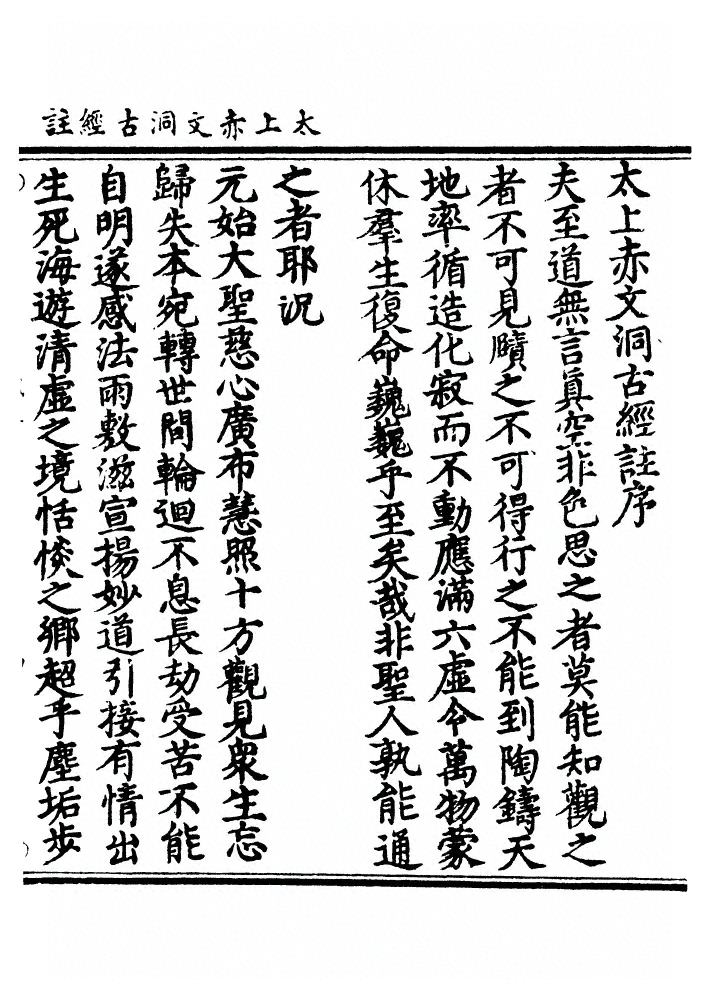 太上赤文洞古經註
太上赤文洞古經註序
夫至道無言真空非色思之者莫能知觀之
者不可見賾之不可得行之不能到陶鑄天
地率循造化寂而不動應滿六虛令萬物蒙
休羣生復命巍巍乎至矣哉非聖人孰能通
之者耶況
元始大聖慈心廣布慧照十方觀見衆生忘
歸失本宛轉世間輪迴不息長劫受苦不能
自明遂感法雨敷滋宣揚妙道引接有情出
生死海遊清虛之境恬惔之鄉超乎塵垢步